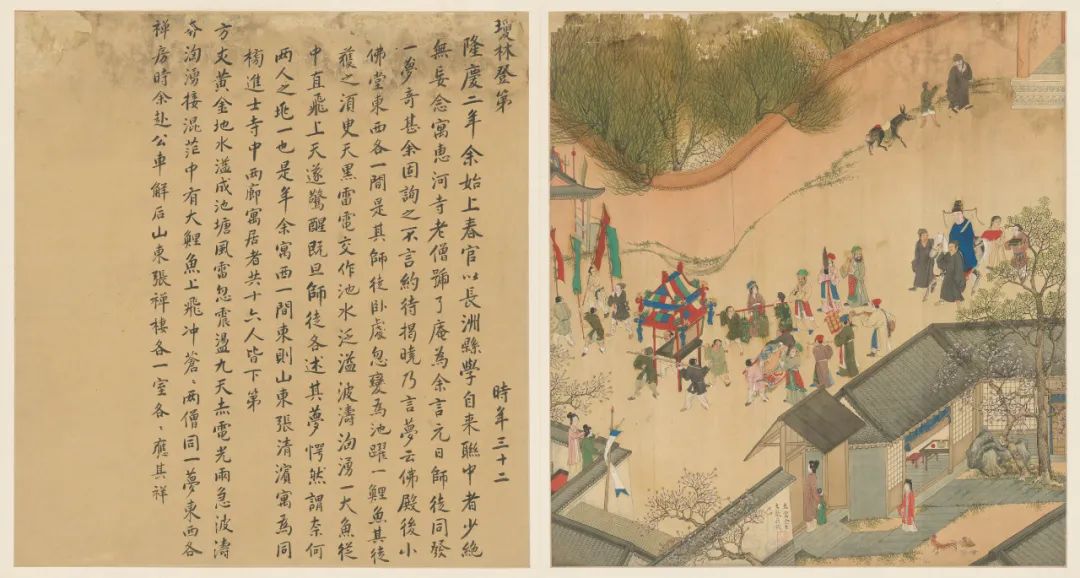 瓊林登第 時年三十二
隆慶二年余始上春官以長洲縣學自来聯中者少絶
無妄念寓恵河寺老僧號了庵為余言元日師徒同發
一夢奇甚余固詢之不言約待揭曉乃言夢云佛殿後小
佛堂東西各一間是其師徒卧處忽變為池躍一鯉魚其徒
獲之湏臾天黒雷電交作池水泛溢波濤洶湧一大魚從
中直飛上天遂驚醒既旦師徒各述其夢愕然謂柰何
两人之兆一也是年余寓西一間東則山東張清濵寓焉同
榜進士寺中两廊寓居者共十六人皆下第
方丈黄金地水溢成池塘風雷忽震盪九天赤電光雨急波濤
奔洶湧接混茫中有大鯉魚上飛冲蒼〻两僧同一夢東西各
禅房時余赴公車解后山東張禅棲各一室各〻應其祥